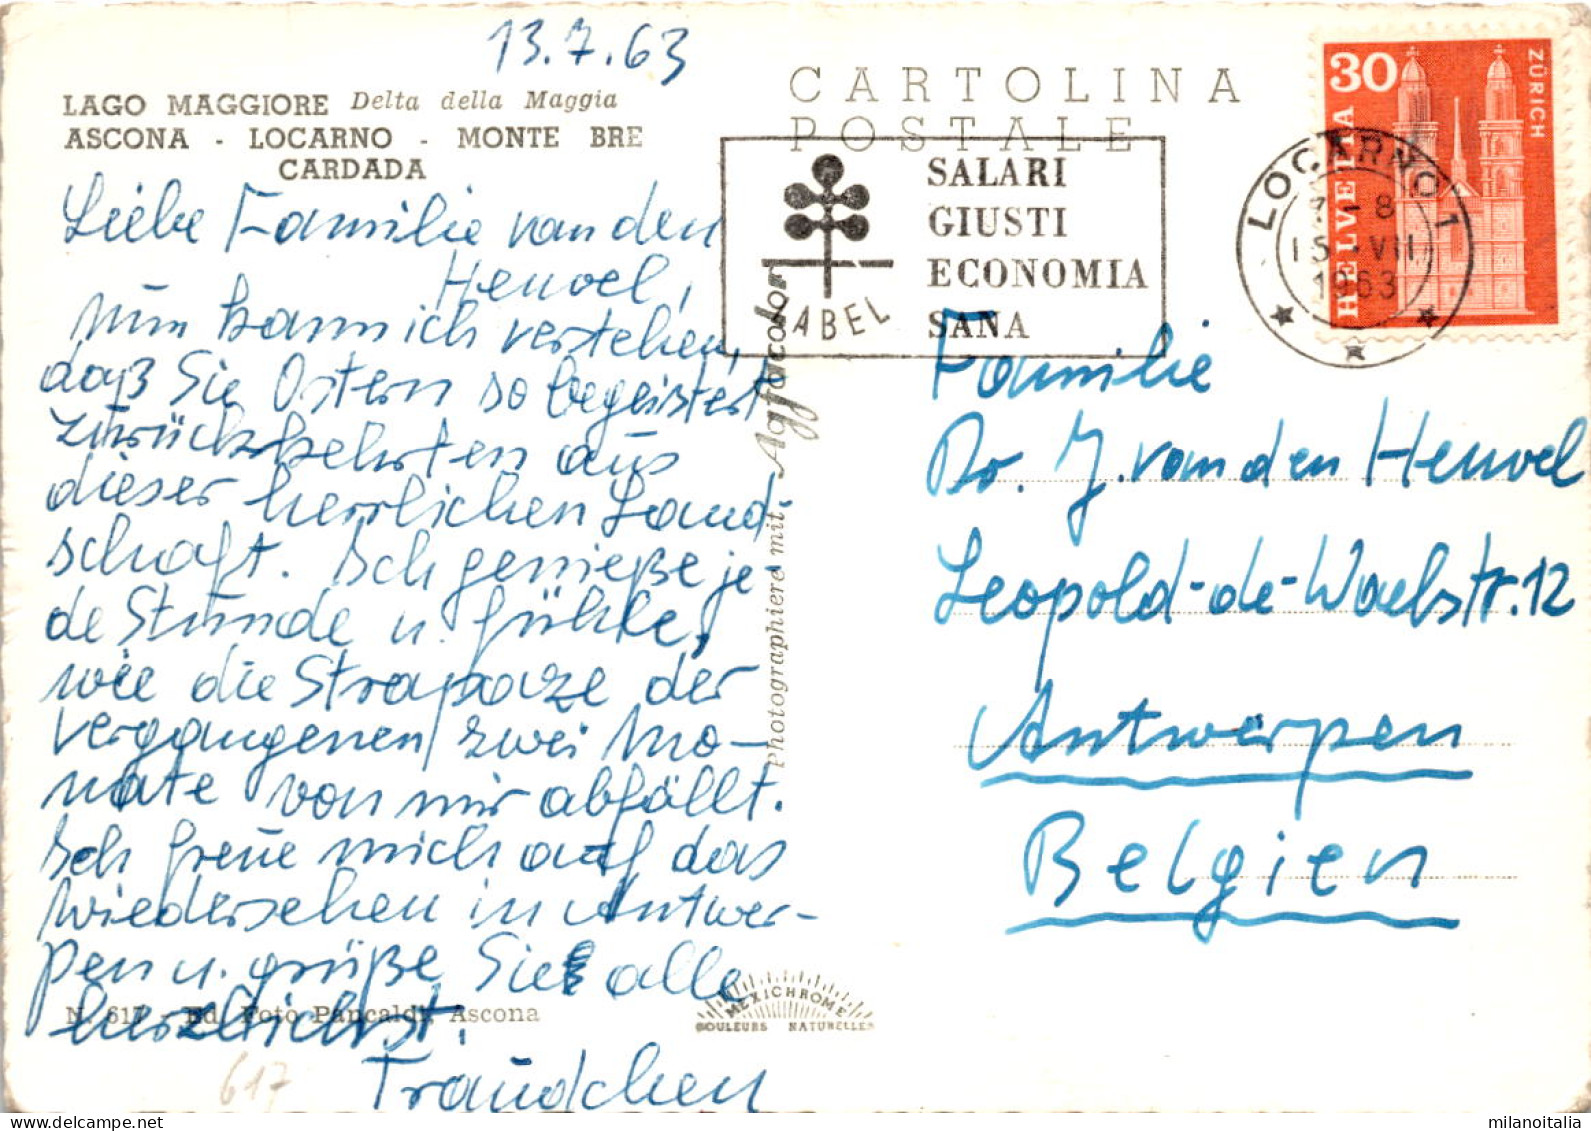 13.7.63
LAGO MAGGIORE Delta della Maggia
ASCONA - LOCARNO - MONTE BRE
CARDADA
Liebe Familie van den
Heuvel,
nun kann ich verstehen,
daß Sie Ostern so begeistert
zurückkehrten aus
dieser herrlichen Land-
schaft. Ich genieße je-
de Stunde u. fühle,
wie die Strapaze der
vergangenen zwei Mo-
nate von mir abfällt.
Ich freue mich auf das
Wiedersehen in Antwer-
pen u. grüße Sie alle
herzlichst.
Traudchen
N. 617 - Ed. Foto Pancaldi, Ascona
617
Photographiere mit Agfacolor
MEXICHROME
COULEURS NATURELLES
CARTOLINA
POSTALE
SALARI
GIUSTI
ECONOMIA
SANA
LABEL
LOCARNO 1
7-8
15.VII
1963
30
HELVETIA
ZÜRICH
Familie
Dr. J. van den Heuvel
Leopold-de-Waelstr. 12
Antwerpen
Belgien
milanoitalia